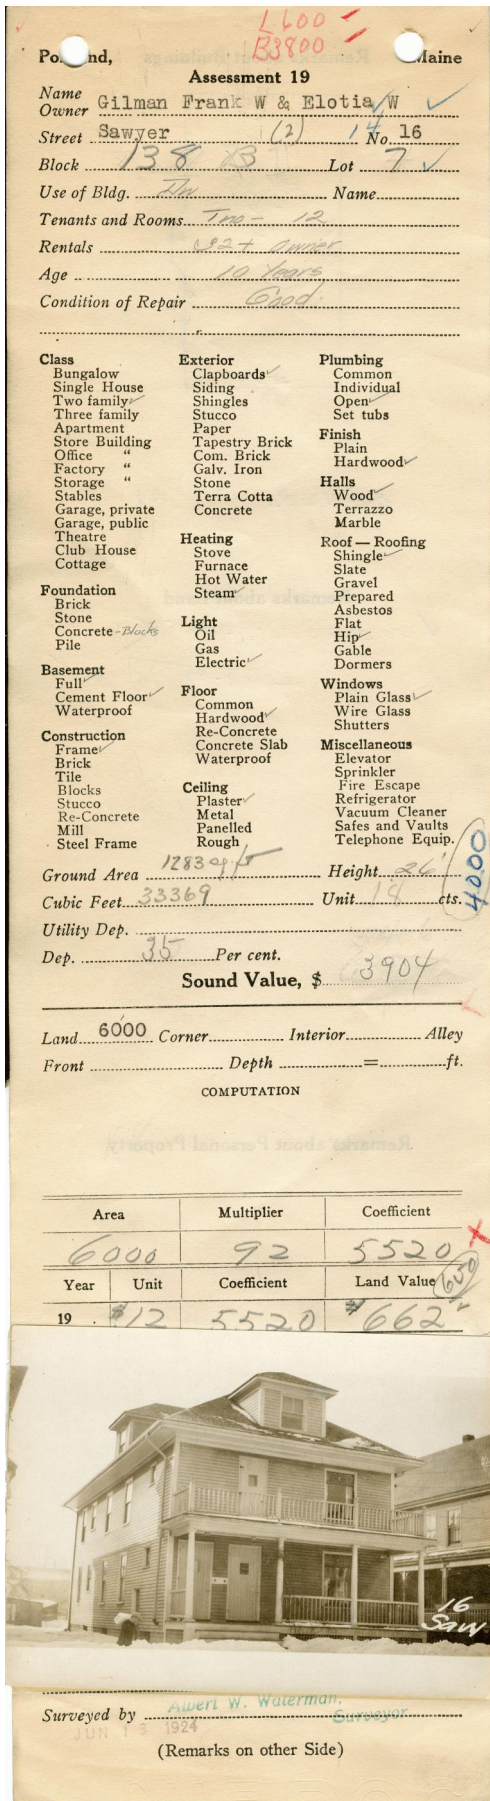 L600
B3800
Portland, Maine
Assessment 19
Name
Owner Gilman Frank W & Elotia W
Street Sawyer (2) 14 No. 16
Block 138 B Lot 7
Use of Bldg. Dw Name
Tenants and Rooms Two - 12
Rentals 32 + Owner
Age 10 Years
Condition of Repair Good
Class
Bungalow
Single House
Two family
Three family
Apartment
Store Building
Office "
Factory "
Storage "
Stables
Garage, private
Garage, public
Theatre
Club House
Cottage
Foundation
Brick
Stone
Concrete - Blocks
Pile
Basement
Full
Cement Floor
Waterproof
Construction
Frame
Brick
Tile
Blocks
Stucco
Re-Concrete
Mill
Steel Frame
Exterior
Clapboards
Siding
Shingles
Stucco
Paper
Tapestry Brick
Com. Brick
Galv. Iron
Stone
Terra Cotta
Concrete
Heating
Stove
Furnace
Hot Water
Steam
Light
Oil
Gas
Electric
Floor
Common
Hardwood
Re-Concrete
Concrete Slab
Waterproof
Ceiling
Plaster
Metal
Panelled
Rough
Plumbing
Common
Individual
Open
Set tubs
Finish
Plain
Hardwood
Halls
Wood
Terrazzo
Marble
Roof — Roofing
Shingle
Slate
Gravel
Prepared
Asbestos
Flat
Hip
Gable
Dormers
Windows
Plain Glass
Wire Glass
Shutters
Miscellaneous
Elevator
Sprinkler
Fire Escape
Refrigerator
Vacuum Cleaner
Safes and Vaults
Telephone Equip.
4000
Ground Area 1283 sq ft Height 26'
Cubic Feet 33369 Unit 18 cts.
Utility Dep.
Dep. 35 Per cent.
Sound Value, $ 3904
Land 6000 Corner Interior Alley
Front Depth = ft.
COMPUTATION
Area Multiplier Coefficient
6000 92 5520
Year Unit Coefficient Land Value 600
19 . $12 5520 $662
16
Saw
Surveyed by Albert W. Waterman,
Surveyor
JUN 13 1924
(Remarks on other Side)